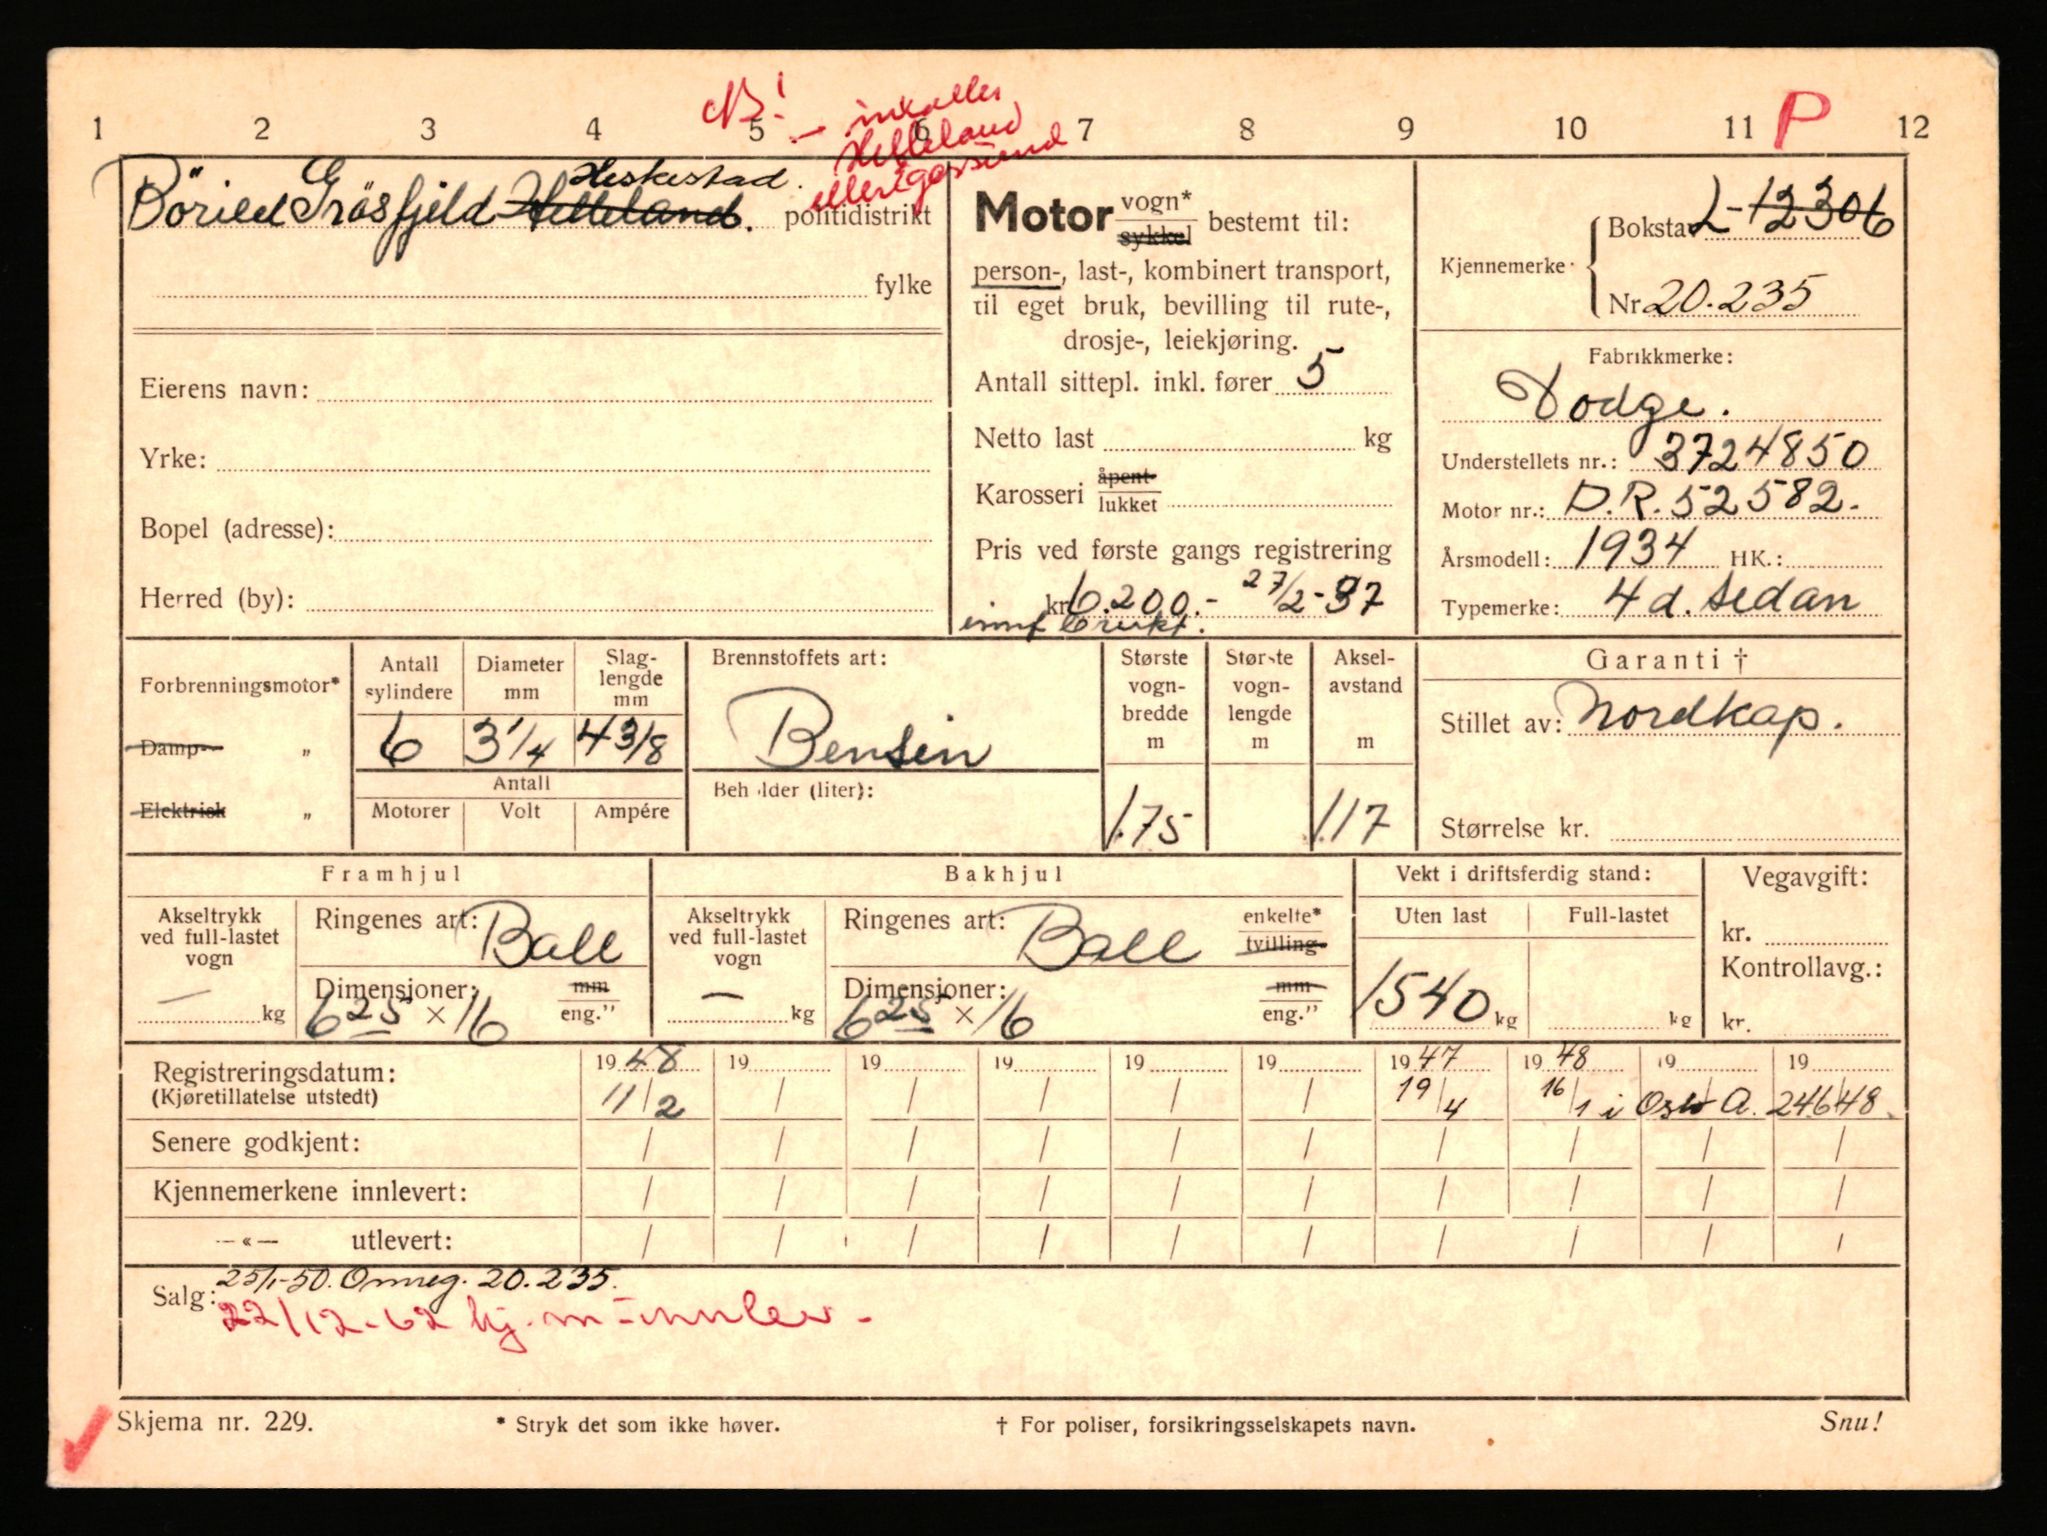 NB! - inkalles
Helleland
1 2 3 4 5 6 7 8 9 10 11 P 12
Heskestad.
Böried Gräsfjeld Helleland. politidistrikt
fylke
Eierens navn:
Yrke:
Bopel (adresse):
Herred (by):
Motor vogn* sykkel bestemt til:
person-, last-, kombinert transport,
til eget bruk, bevilling til rute-,
drosje-, leiekjøring.
Antall sittepl. inkl. fører 5
Netto last kg
Karosseri åpent lukket
Pris ved første gangs registrering
kr 6.200.- 27/2-37
innf brukt.
Kjennemerke
Bokstav L-12306
Nr 20.235
Fabrikkmerke:
Dodge.
Understellets nr.: 3724850
Motor nr.: D.R.52582.
Årsmodell: 1934 HK.:
Typemerke: 4 d. Sedan
Forbrenningsmotor*
Damp- „
Elektrisk „
Antall sylindere
Diameter mm
Slag-lengde mm
6 3 1/4 4 3/8
Antall
Motorer Volt Ampére
Brennstoffets art:
Bensin
Beholder (liter):
Største vogn-bredde m
1.75
Største vogn-lengde m
Aksel-avstand m
1.17
Garanti †
Stillet av: Nordkap.
Størrelse kr.
Framhjul
Akseltrykk ved full-lastet vogn
— kg
Ringenes art: Ball
Dimensjoner: mm
6 25 × 16 eng."
Bakhjul
Akseltrykk ved full-lastet vogn
— kg
Ringenes art: Ball enkelte* tvilling-
Dimensjoner: mm
6 25 × 16 eng."
Vekt i driftsferdig stand:
Uten last Full-lastet
1540 kg kg
Vegavgift:
kr.
Kontrollavg.:
kr.
Registreringsdatum: 19 48 19 19 19 19 19 19 47 19 48 19 19
(Kjøretillatelse utstedt) 11/2 / / / / / 19/4 16/1 i Oslo A. 24648.
Senere godkjent: / / / / / / / / / /
Kjennemerkene innlevert: / / / / / / / / / /
—«— utlevert: / / / / / / / / / /
25/1-50. Omreg. 20.235.
Salg: 22/12-62 kj.m-innlev-
Skjema nr. 229. * Stryk det som ikke høver. † For poliser, forsikringsselskapets navn. Snu!